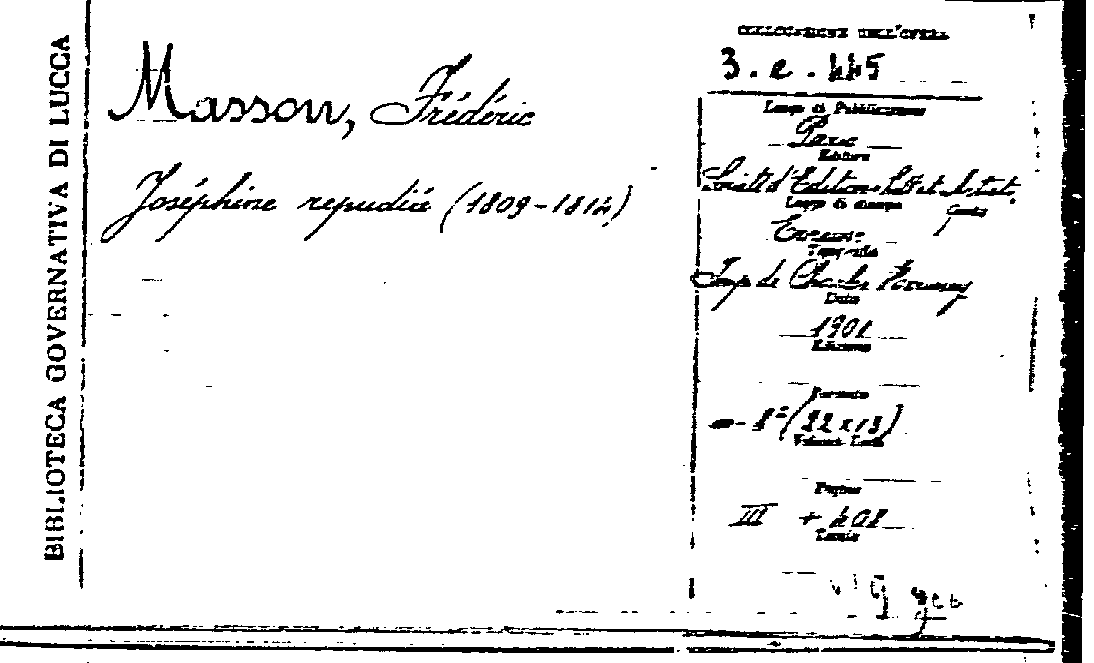 BIBLIOTECA GOVERNATIVA DI LUCCA
Masson, Frédéric
Joséphine repudiée (1809-1814)
COLLOCAZIONE DELL'OPERA
3. e. 445
Luogo di Pubblicazione
Paris
Editore
Société d'Editions Litt. et Artist.
Luogo di stampa
Evreux
Tipografia
Imp. de Charles Hérissey
Data
1901
Edizione
Formato
in-8º (22x13)
Volume
Pagine
III + 408